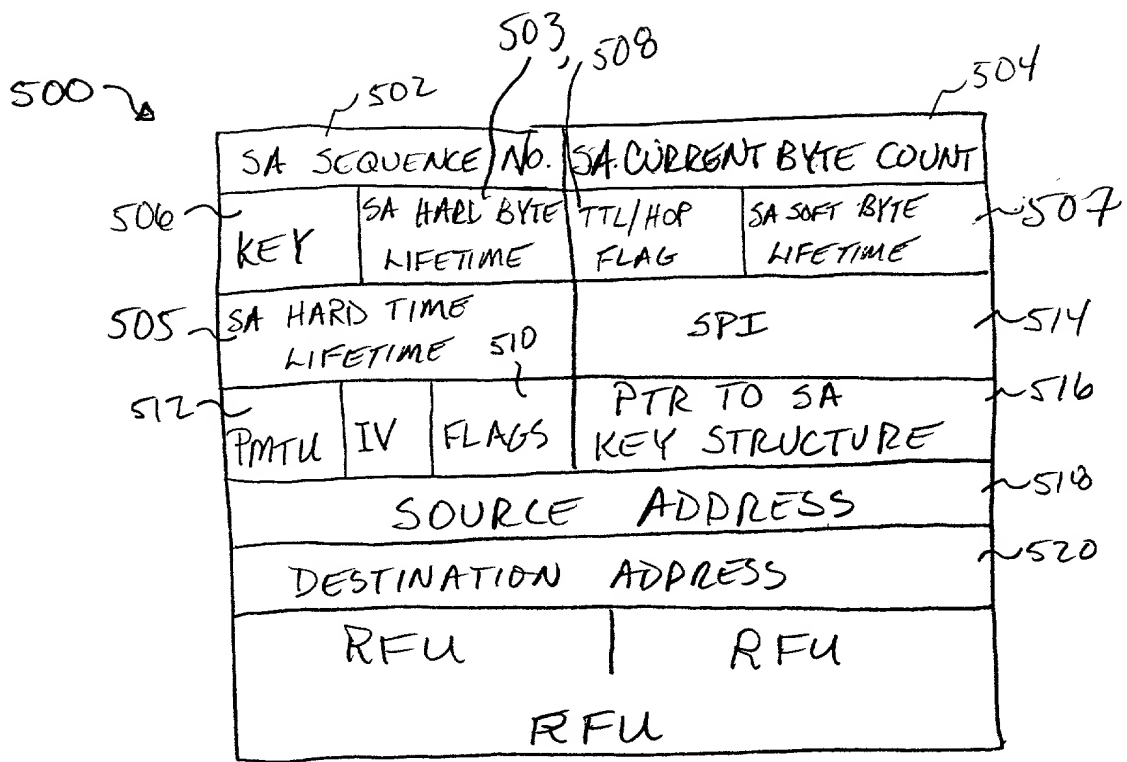 503, 508
500 502 504
SA SEQUENCE NO. SA CURRENT BYTE COUNT
506 KEY SA HARD BYTE LIFETIME TTL/HOP FLAG SA SOFT BYTE LIFETIME 507
505 SA HARD TIME LIFETIME SPI 514
512 PMTU IV FLAGS 510 PTR TO SA KEY STRUCTURE 516
SOURCE ADDRESS 518
DESTINATION ADDRESS 520
RFU RFU
RFU